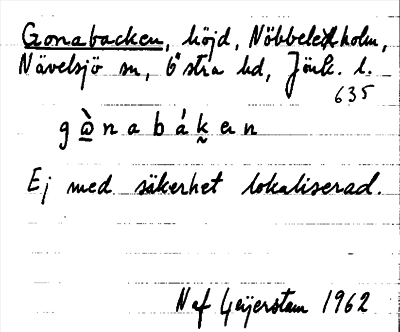 Gonabacken, höjd, Nöbbeleholm,
Nävelsjö sn, Östra hd, Jönk. l.
635
g ò̲ n a b á k̰ a n
Ej med säkerhet lokaliserad.
N af Geijerstam 1962